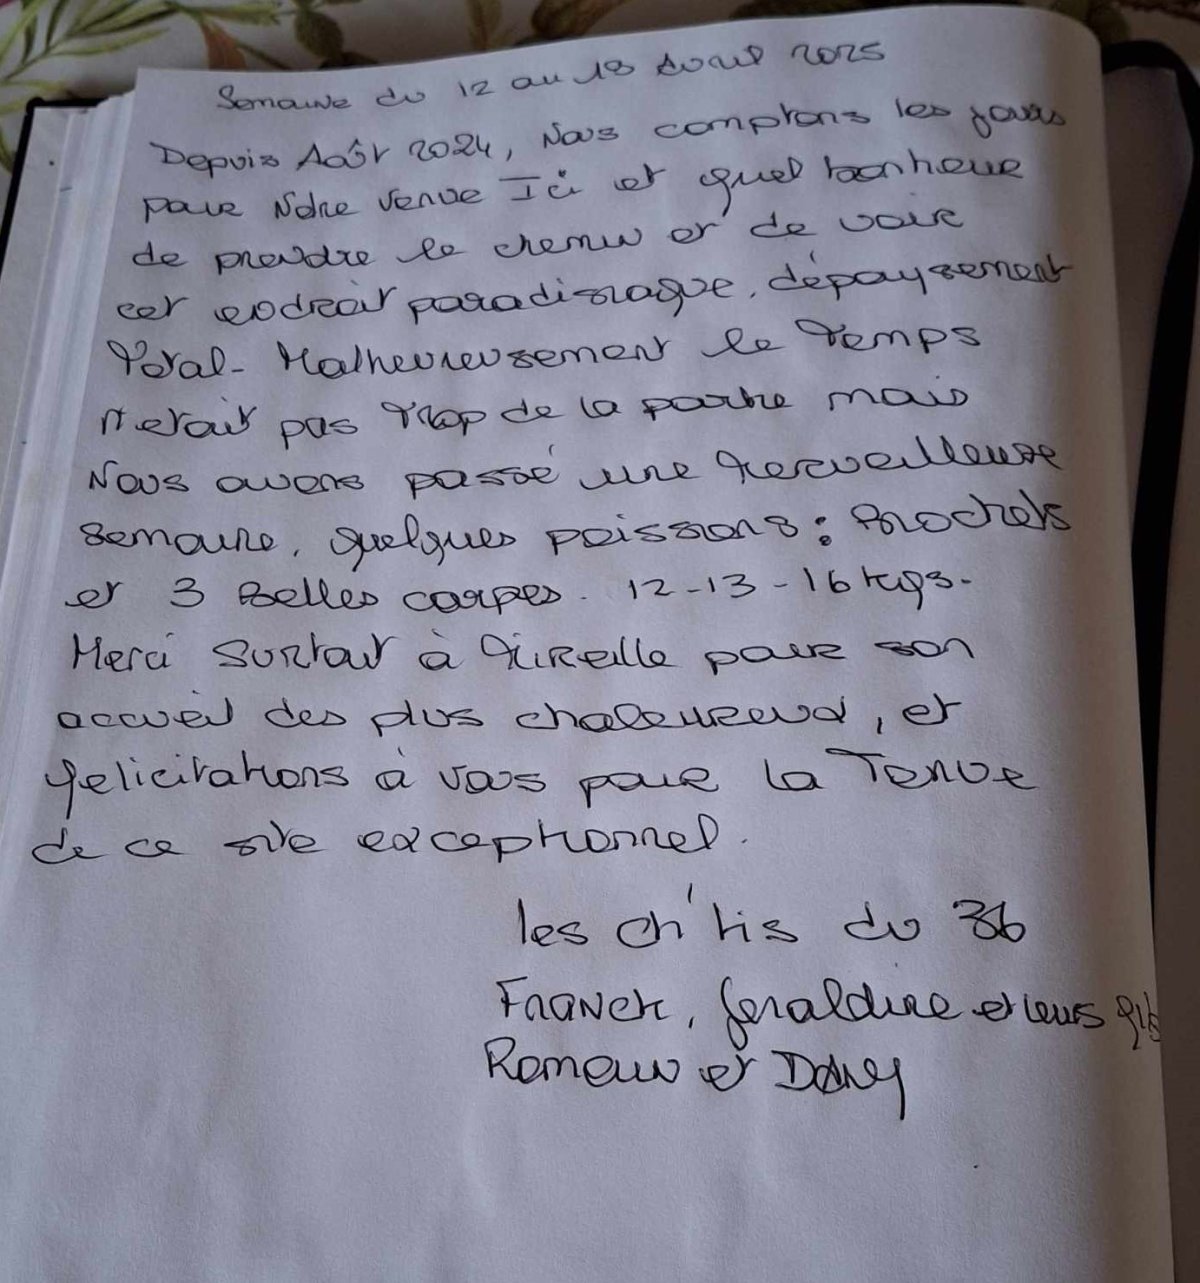 Semaine du 12 au 18 Avril 2025
Depuis Août 2024, Nous comptons les jours
pour Notre venue Ici et quel bonheur
de prendre le chemin et de voir
cet endroit paradisiaque, dépaysement
Total- Malheureusement le Temps
n'etait pas Trop de la partie mais
Nous avons passé une Merveilleuse
semaine, quelques poissons : Brochets
et 3 Belles carpes. 12-13-16 kgs.
Merci surtout à Mireille pour son
accueil des plus chaleureux, et
felicitations à vous pour la Tenue
de ce site exceptionnel.
les ch'tis du 36
Franck, Geraldine et leurs fils
Romain et Dany